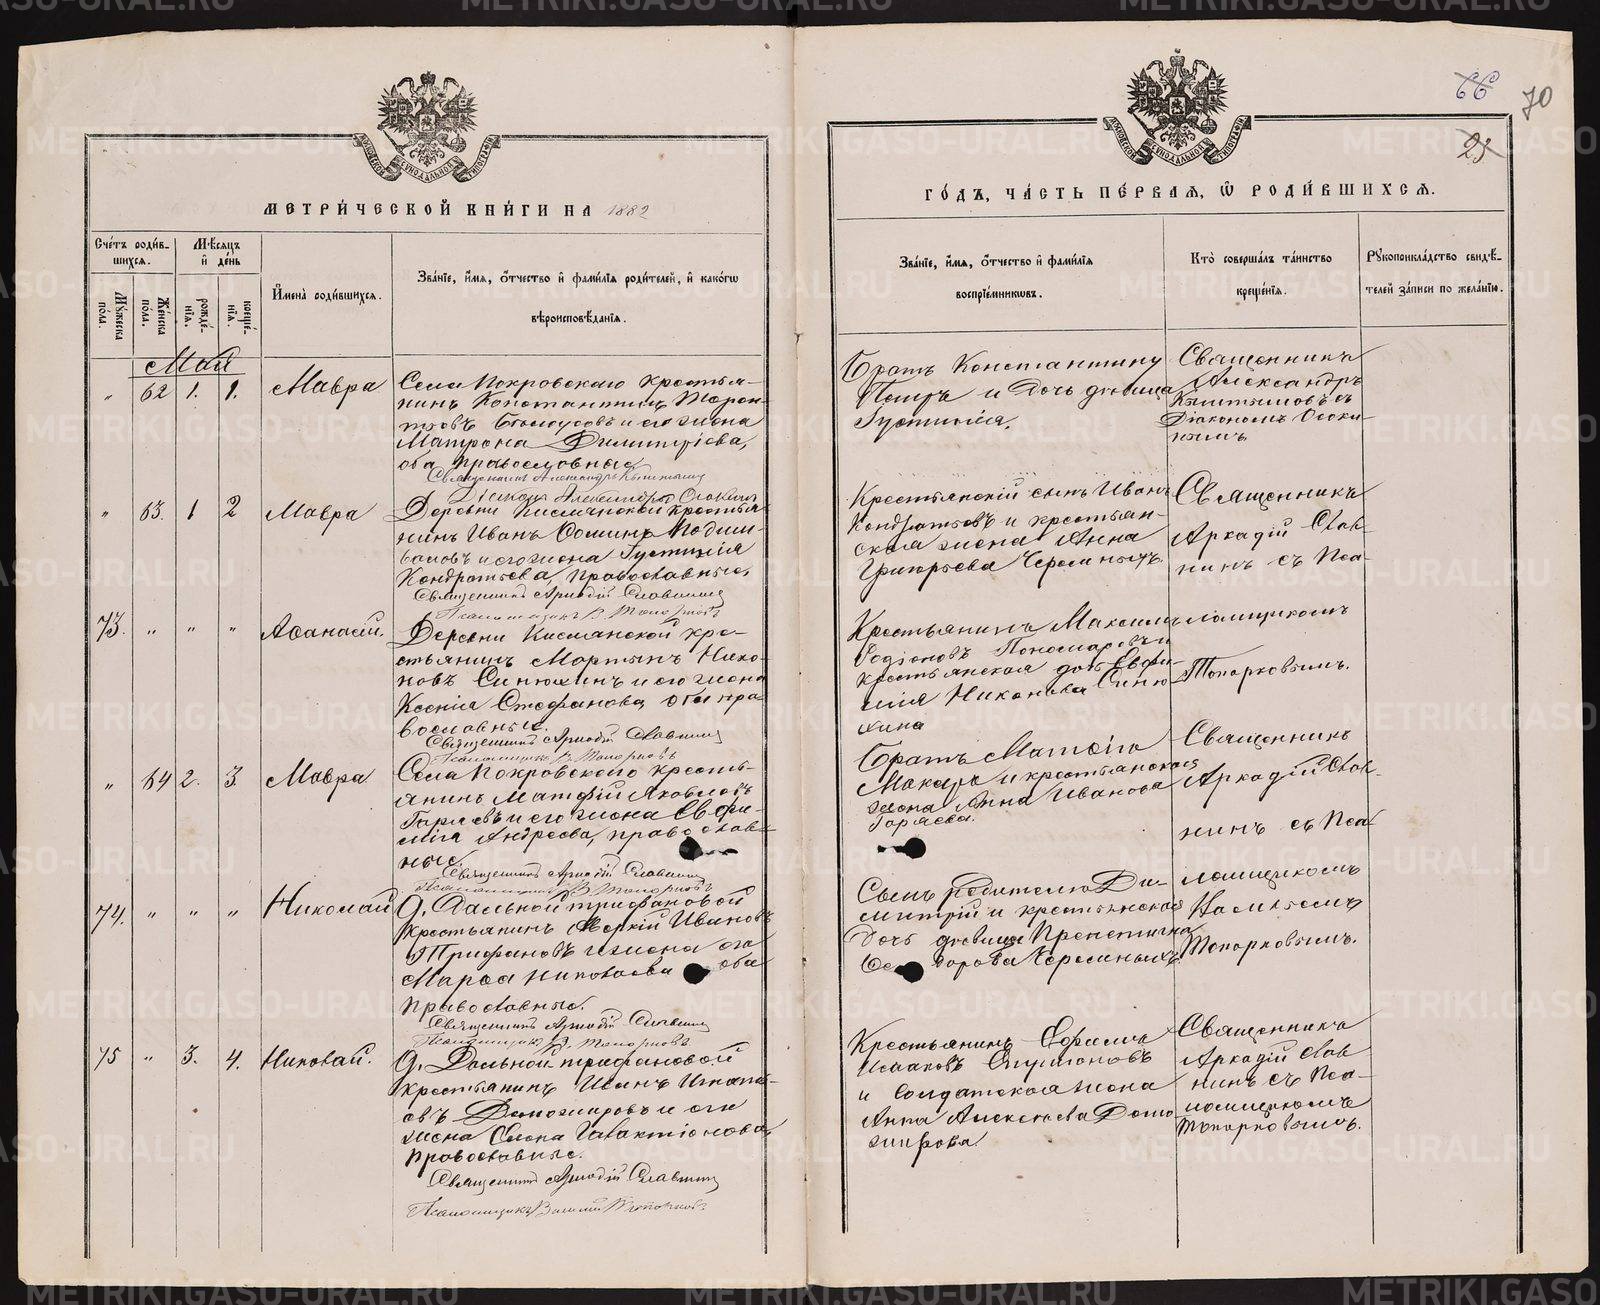 66
70
25
МЕТРИ́ЧЕСКОЙ КНИ́ГИ НА 1882
Сче́тъ роди́в-
шихся.
Мѣ́сяцъ
и҆ де́нь
Мꙋ́жеска по́ла.
Же́нска по́ла.
рожде́-
нїѧ.
креще́-
нїѧ.
И҆мена̀ роди́вшихся.
Зва́нїе, и҆́мѧ, ѻ҆́тчество и҆ фами́лїѧ роди́телей, и҆ како́гѡ
вѣроисповѣ́данїѧ.
Май
„ 62 1. 1. Мавра
Села Покровскаго кресть-
янинъ Константинъ Терен-
тьевъ Белоусовъ и его жена
Матрона Димитріева,
оба православные
Священникъ Александръ
Діаконъ Александръ
„ 63. 1 2 Мавра
Деревни Кислянской крестья-
нинъ Иванъ Ѳоминъ
и его жена Іустинія
Кондратьева, православные,
Священникъ Аркадій Славнинъ
Псаломщикъ В. Топорковъ
73. „ „ „ Аѳанасій.
Деревни Кислянской кре-
стьянинъ Мартынъ Нико-
новъ Синюхинъ и его жена
Ксенія Стефанова, оба пра-
вославные.
Священникъ Аркадій Славнинъ
Псаломщикъ В. Топорковъ
„ 64 2. 3. Мавра
Села Покровскаго кресть-
янинъ Матѳій Яковлевъ
Горяевъ и его жена Евфи-
мія Андреева, православ-
ные
Священникъ Аркадій Славнинъ
Псаломщикъ В. Топорковъ
74. „ „ „ Николай
Д. Дальной трифановой
крестьянинъ Ивановъ
Трифановъ и жена его
Марѳа Николаева оба
православные.
Священникъ Аркадій Славнинъ
Псаломщикъ В. Топорковъ
75 „ 3. 4. Николай.
Д. Дальной-трифановой
крестьянинъ
Доможировъ и его
жена Елена Галактіонова
православные.
Священникъ Аркадій Славнинъ
Псаломщикъ Василій Топорковъ
ГО́ДЪ, ЧА́СТЬ ПЕ́РВАѦ, Ѡ҆ РОДИ́ВШИХСѦ.
Зва́нїе, и҆́мѧ, ѻ҆́тчество и҆ фами́лїѧ
воспрїе́мниковъ.
Кто̀ соверша́лъ та́инство
креще́нїѧ.
Рꙋкоприкла́дство свидѣ́-
телей за́писи по жела́нїю.
Братъ Константину
Петръ и дочь девица
Іустинія.
Священникъ
Александръ
съ
Діакономъ Осоки-
нымъ
Крестьянскій сынъ Иванъ
Кондратьевъ и крестьян-
ская жена Анна
Григорьева Черемныхъ.
Священникъ
Аркадій Слав-
нинъ съ Пса-
ломщикомъ
Топорковымъ.
Крестьянинъ Максимъ
Родіоновъ Пономаревъ и
крестьянская дочь Евфи-
мія Никонова Синю-
хина
Братъ Матѳію
Макаръ и крестьянская
жена Анна Иванова
Горяева.
Священникъ
Аркадій Слав-
нинъ съ Пса-
ломщикомъ
Топорковымъ.
Сынъ родителю Ди-
митрій и крестьянская
дочь девица
Черемныхъ
Крестьянинъ Ефремъ
Исааковъ
и солдатская жена
Анна Алексеева Домо-
жирова
Священникъ
Аркадій Слав-
нинъ съ Пса-
ломщикомъ
Топорковымъ.
METRIKI.GASO-URAL.RU